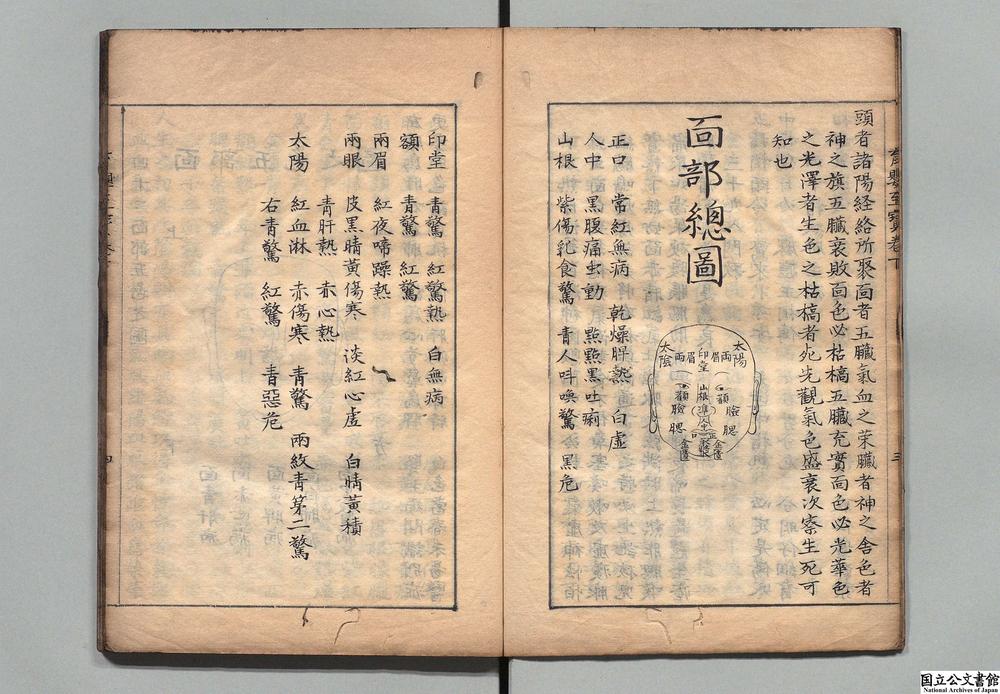 頭者諸陽経絡所聚面者五臓氣血之荣臓者神之舍色者
神之旗五臓衰敗面色必枯槁五臓充實面色必光華色
之光澤者生色之枯槁者死先觀氣色盛衰次察生死可
知也
面部總圖
太陽
兩眉印堂眉兩
太陰
山根
臉
腮
臉
腮
金匱
金匱
正口 常紅無病 乾燥脾熱 白虚
人中 黑腹痛虫動 點點黑吐痢
山根 紫傷乳食驚 青人呌喚驚 黑危
三
印堂 青驚 紅驚熱 白無病
額 青驚 紅驚
兩眉 紅夜啼躁熱
兩眼 皮黑睛黄傷寒 淡紅心虚 白睛黃積
青肝熱 赤心熱
太陽 紅血淋 赤傷寒 青驚 兩紋青第二驚
右青驚 紅驚 青惡危
四
国立公文書館
National Archives of Japan